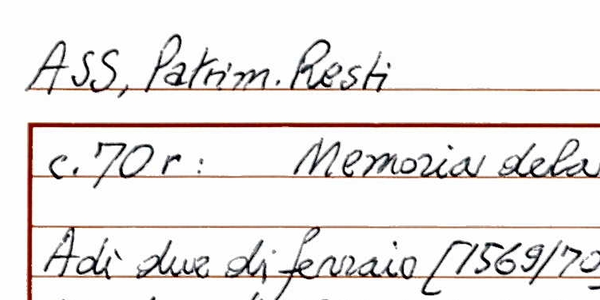 ASS, Patrim. Resti
c. 70 r: Memoria dela
Adi due di ferraio [1569/70